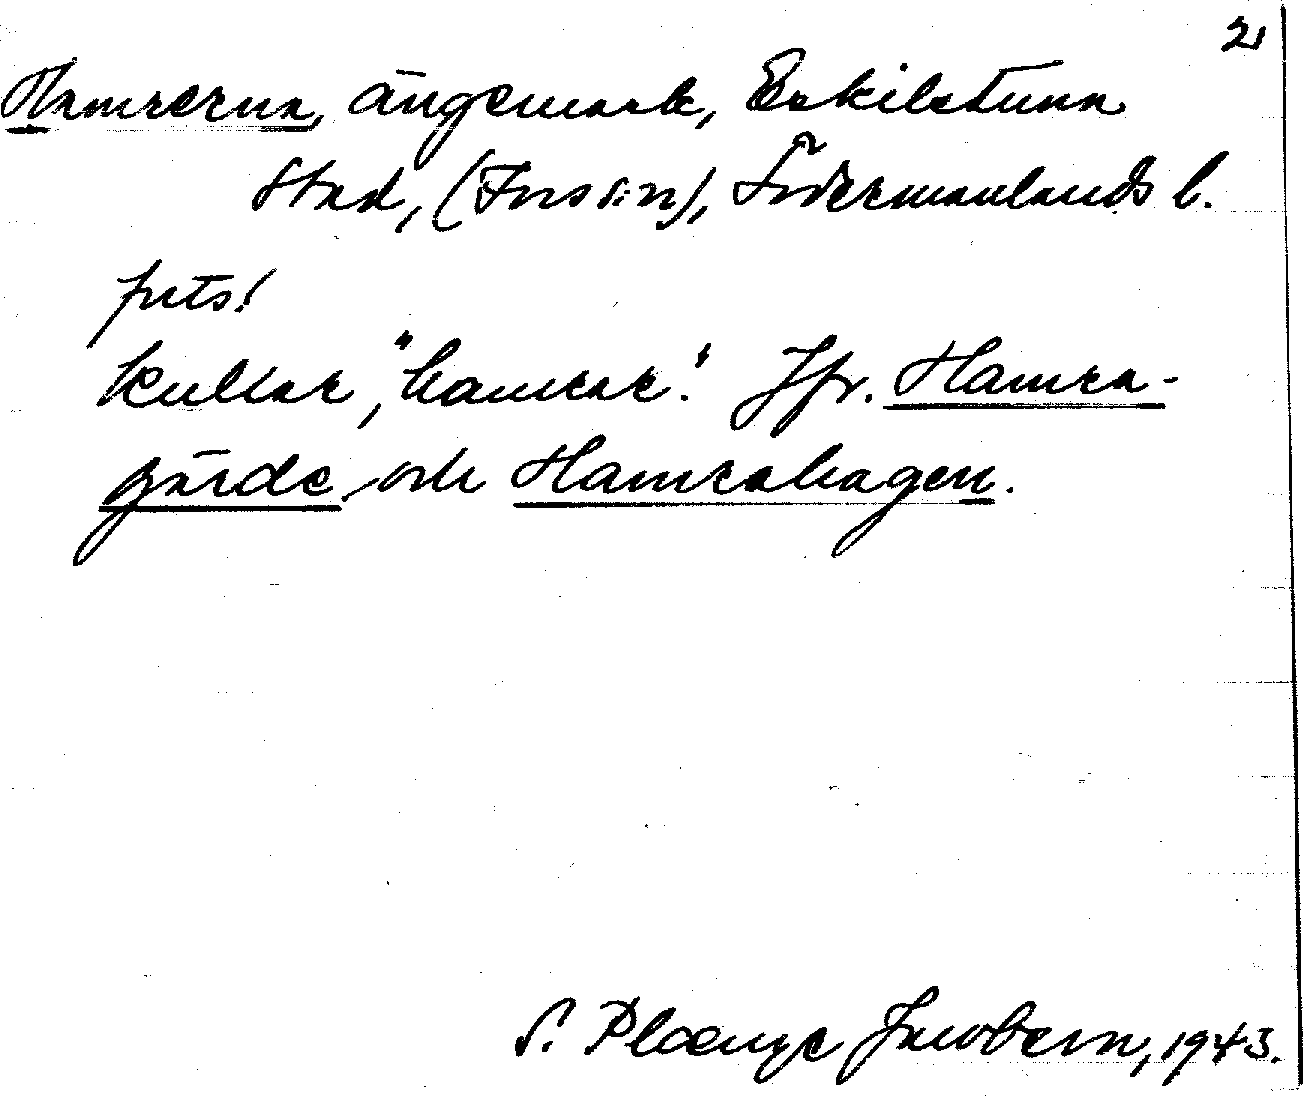 2
Hamrerna, ängsmark, Eskilstuna
stad, (Fors s:n), Södermanlands l.
forts!
kullar, "hamrar". Jfr. Hamra-
gärde och Hamrahagen.
S. Plœnge Jacobson, 1943.